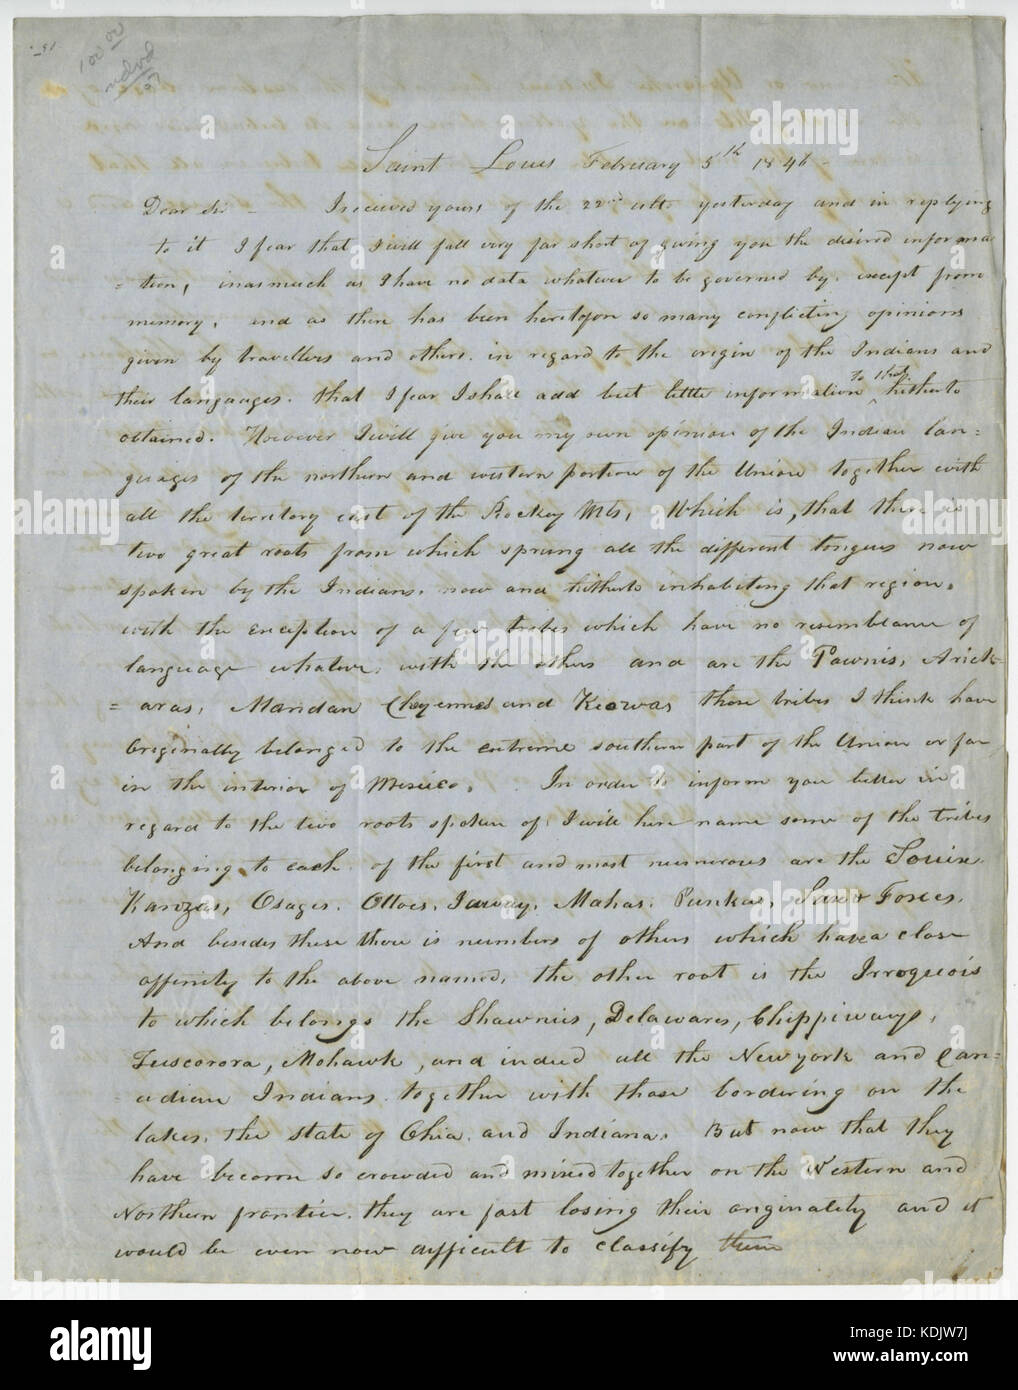 100 00
Saint Louis February 5th 1846 -
Dear Sir - I received yours of the 22nd ult. yesterday and in replying
to it I fear that I will fall very far short of giving you the desired informa
= tion, inasmuch as I have no data whatever to be governed by. except from
memory, and as there has been heretofore so many conflicting opinions
given by travellers and others. in regard to the origin of the Indians and
their languages. that I fear I shall add but little information to that hitherto
obtained. However I will give you my own opinion of the Indian lan=
guages of the northern and western portion of the Union together with
all the territory east of the Rockey Mts, Which is, that there is
two great roots from which sprung all the different tongues now
spoken by the Indians. now and hitherto inhabiting that region.
with the exception of a few tribes which have no resemblance of
language whatever. with the others and are the Pawnis, Arick=
= aras, Mandan Cheyennes and Keowas those tribes I think have
Originally belonged to the extreme southern part of the Union or far
in the interior of Mexico. In order to inform you better in
regard to the two roots spoken of, I will here name some of the tribes
belonging to each. of the first and most numerous are the Souix
Kanzas, Osages. Ottoes, Ioway. Mahas. Punkas, Sax & Foxes.
And besides these there is numbers of others which have a close
affinity to the above named, the other root is the Irroquois
to which belongs the Shawnies, Delawares, Chippiways,
Tuscorora, Mohawk, and indeed all the New york and Can=
= adian Indians. together with those bordering on the
lakes. the state of Ohio. and Indiana. But now that they
have become so crowded and mixed together on the Western and
Northern frontier. they are fast losing their originality and it
would be even now difficult to classify them
alamy stock photo
alamy
a
KDJW7J
www.alamy.com